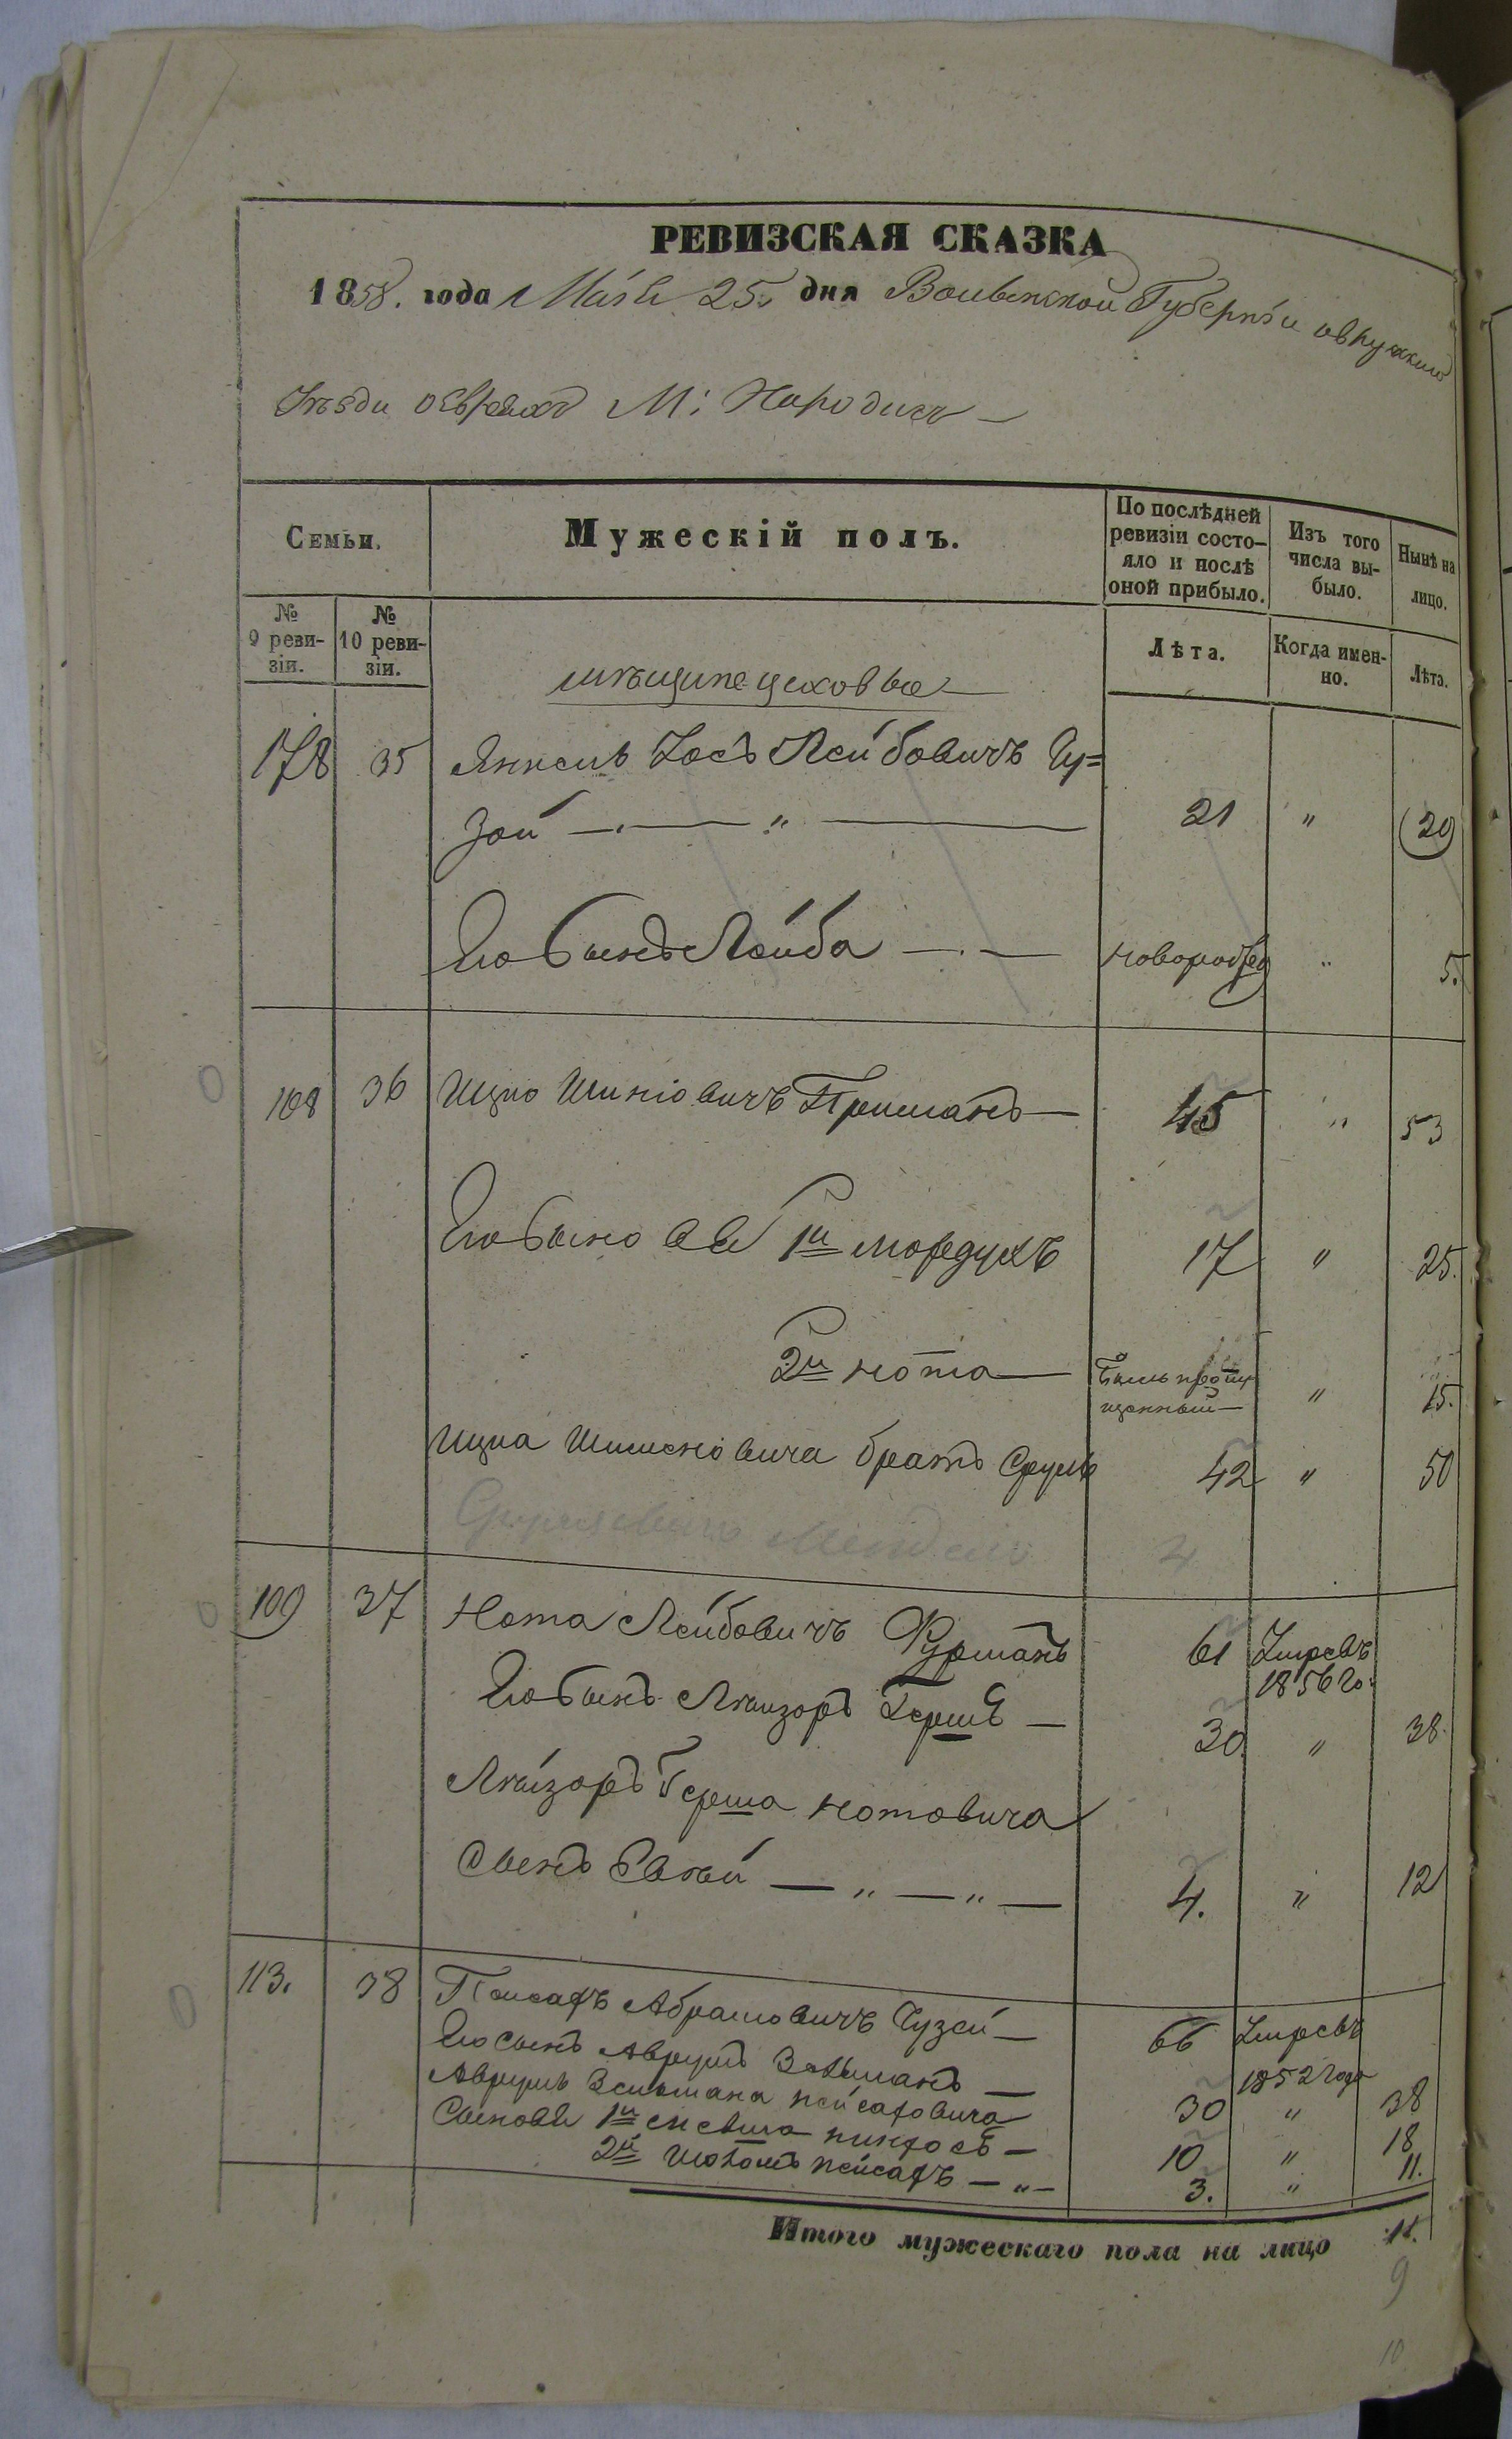 РЕВИЗСКАЯ СКАЗКА
1858. года Маія 25. дня Волынской Губерніи овручкаго
Уѣзда о Евреяхъ М: Народичъ —
Семьи.
Мужескій полъ.
По послѣдней ревизіи состо-яло и послѣ оной прибыло.
Изъ того числа вы-было.
Нынѣ на лицо.
№ 9 реви-зіи.
№ 10 реви-зіи.
Лѣта.
Когда имен-но.
Лѣта.
мѣщане цеховые
178 35 Янкель Іосъ Лейбовичъ Гу=
зой — " — 21 " 29
Его Сынъ Лейба — новорожден " 5.
108 36 Ицко Шиміовичъ Пришманъ — 45 " 53
Его Сыновья 1й мордухъ 17 " 25.
2й нота — былъ пропущенный — " 15.
Ицка братъ Сруль 42 " 50
Мендель 4
109 37 Нота Лейбовичъ Фурманъ 61 Умеръ въ 1856 го.
Его Сынъ Лейзоръ Гершъ — 30 " 38.
Лейзоръ Герша нотовича
Сынъ — " — " — 4. " 12
113. 38 Пейсахъ Абрамовичъ Гузей — 66 Умеръ въ 1852 года
Его Сынъ Аврумъ Зельманъ — 30 " 38
Аврума Зельмана пейсаховича
Сыновья 1й пинхосъ — 10 " 18
2й пейсахъ — " — 3. " 11.
Итого мужескаго пола на лицо 11.
9
10